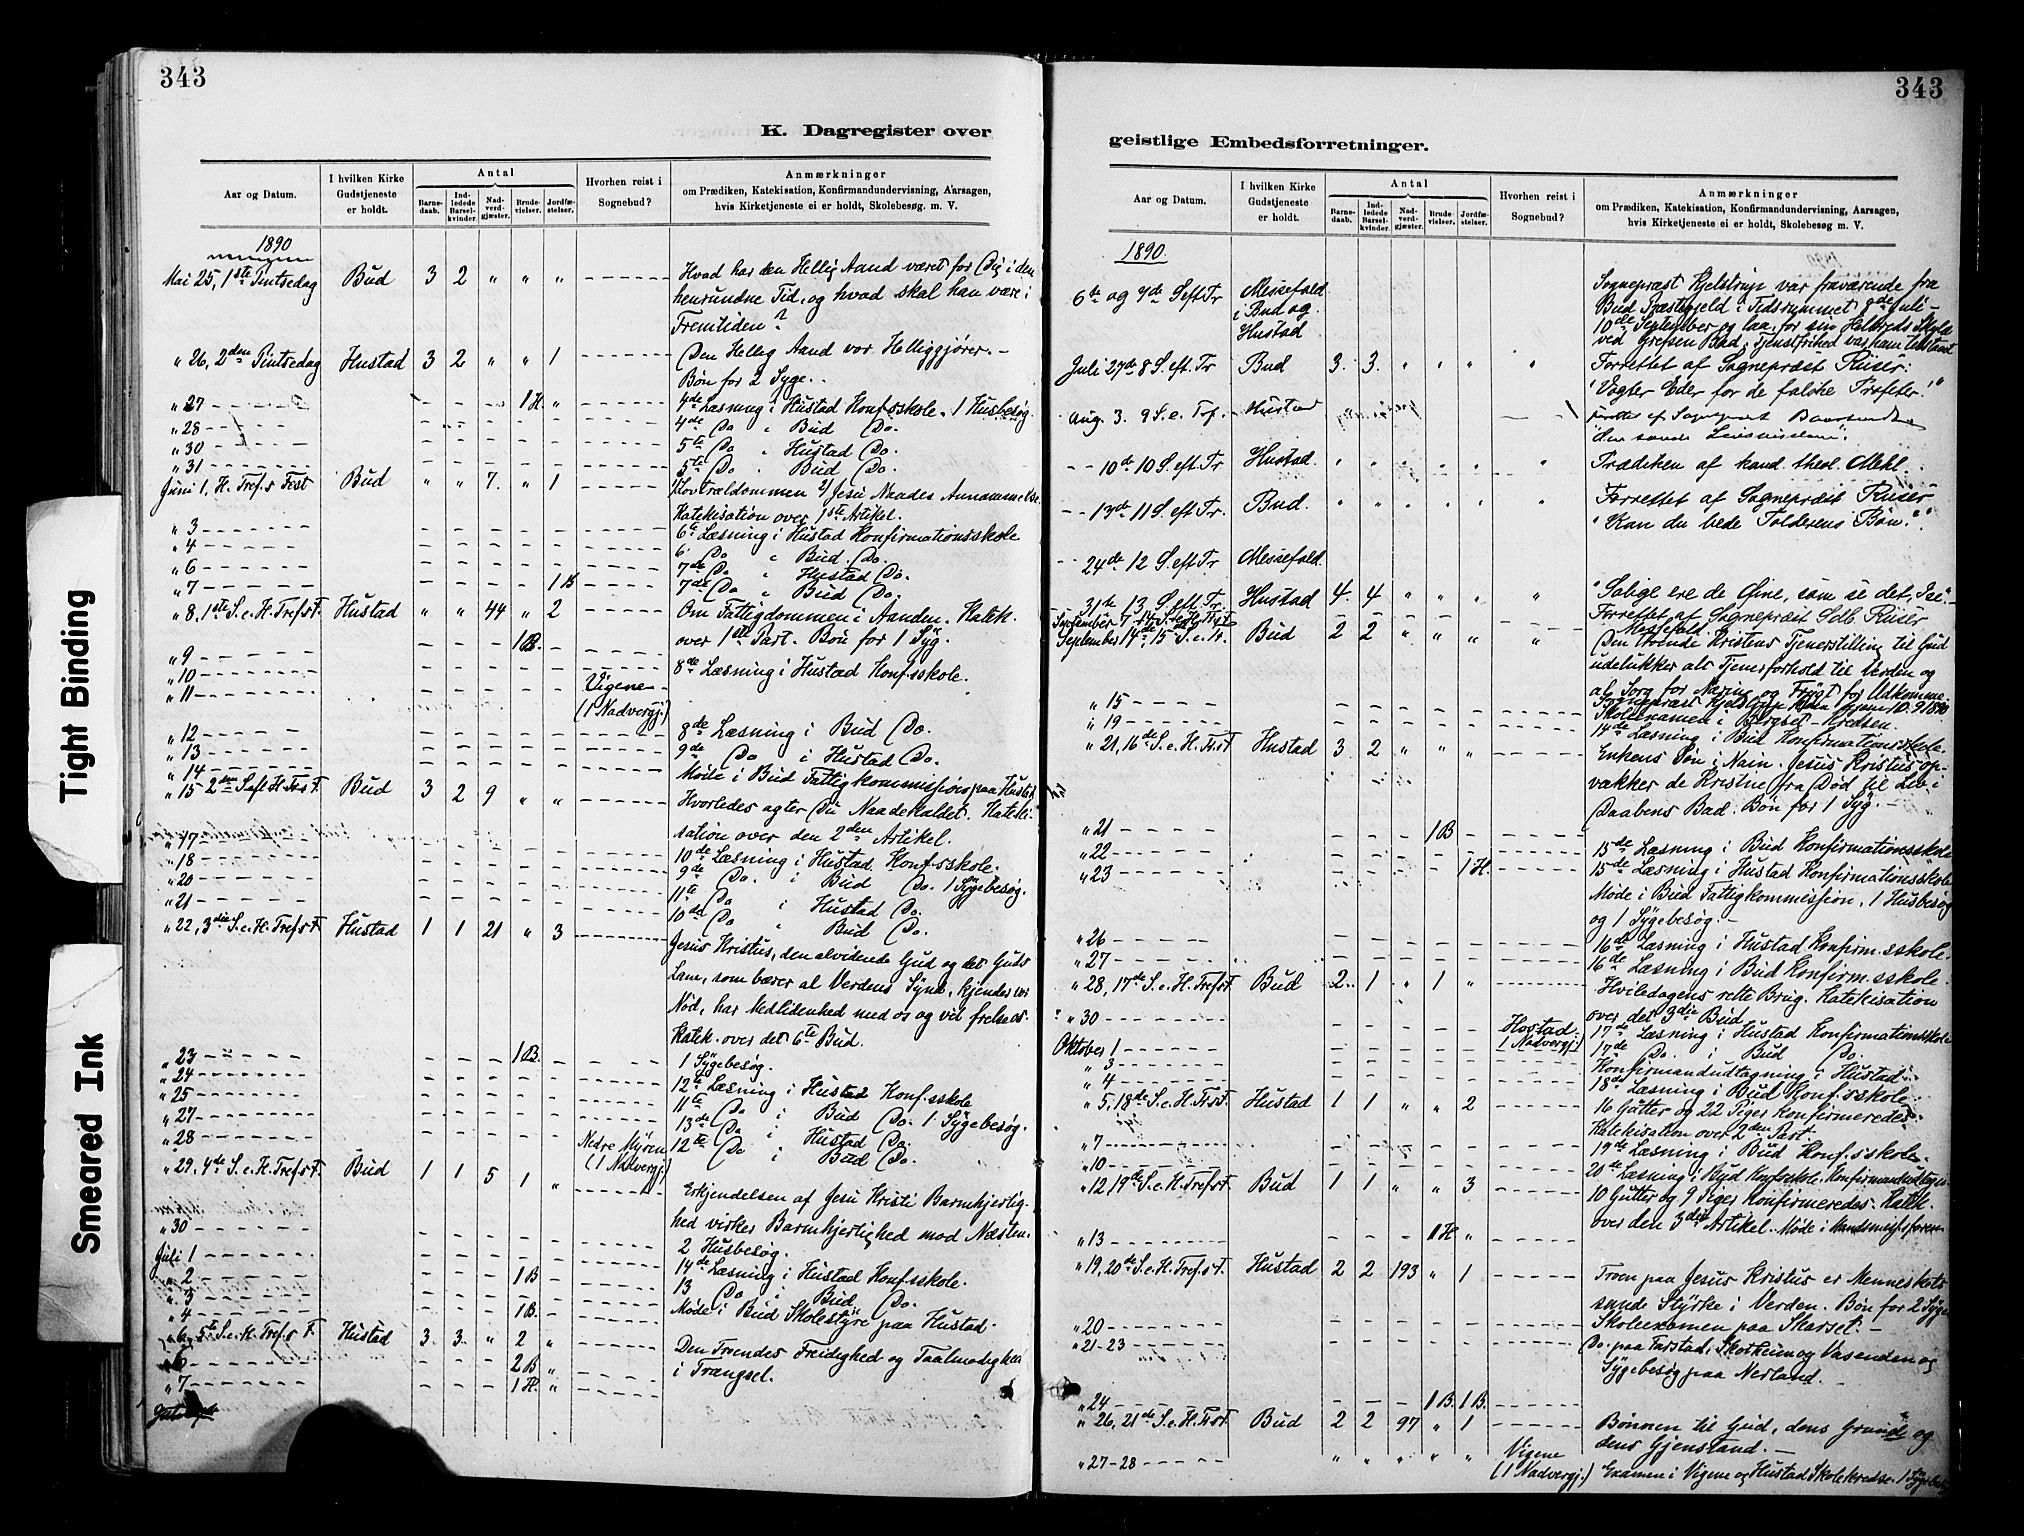 343
K. Dagregister over
Aar og Datum.
I hvilken Kirke Gudstjeneste er holdt.
Antal
Barnedaab.
Indledede Barselkvinder.
Nadverdgjæster.
Brudevielser.
Jordfæstelser.
Hvorhen reist i Sognebud?
Anmærkninger
om Prædiken, Katekisation, Konfirmandundervisning, Aarsagen,
hvis Kirketjeneste ei er holdt, Skolebesøg. m. V.
1890
Mai 25, 1ste Pintsedag Bud 3 2 " " " Hvad har den Hellig Aand været for Dig i den
henrundne Tid, og hvad skal han være i
Fremtiden?
" 26, 2den Pintsedag Hustad 3 2 " " 1 Den Hellig Aand vor Helliggjører. –
Bøn for 2 Syge.
" 27 1 H. " 4de Læsning i Hustad Konf.sskole. 1 Husbesøg.
" 28 4de Do " Bud Do.
" 30 5te Do " Hustad Do.
" 31 5te Do " Bud Do.
Juni 1, H. Tref.s Fest Bud " " 7. " 1 1) Lovtrældommen 2) Jesu Naades Annammelse.
Katekisation over 1ste Artikel.
" 3 6te Læsning i Hustad Konfirmationsskole
" 4 6 Do " Bud Do.
" 6 7de Do " Hustad Do.
" 7 1 B 7de Do " Bud Do.
" 8, 1ste S. e. H. Tref.s F. Hustad " " 44 " 2 Om Fattigdommen i Aanden. Katek.
over 1ste Part. Bøn for 1 Syg.
" 9 1 B.
" 10 8de Læsning i Hustad Konf.sskole.
" 11 Vigene (1 Nadvergj.)
" 12 8de Læsning i Bud Do.
" 13 9de Do i Hustad Do.
" 14 Møde i Bud Fattigkommission paa Hustad
" 15 2den S. eft H. Tr.s F. Bud 3 2 9 " " Hvorledes agter Du Naadekaldet. Kateki-
sation over den 2den Artikel.
" 17 10de Læsning i Hustad Konf.sskole.
" 18 9de Do. i Bud Do. 1 Sygebesøg.
" 20 11te Do i Hustad Do.
" 21 10de Do i Bud Do.
" 22, 3die S. e. H. Tref.s F. Hustad 1 1 21 " 3 Jesus Kristus, den alvidende Gud og det Guds
Lam, som bærer al Verdens Synd, kjender vor
Nød, har Medlidenhed med os og vil frelse os.
Katek. over det 6te Bud.
" 23 1 B. 1 Sygebesøg.
" 24 12te Læsning i Hustad Konf.sskole
" 25 11te Do i Bud Do. 1 Sygebesøg.
" 27 13de Do i Hustad Do.
" 28 Nedre Myren (1 Nadvergj.) 12te Do i Bud Do.
" 29. 4de S. e. H. Tref.s F. Bud 1 1 5 1 " Erkjendelsen af Jesu Kristi Barmhjertig-
hed virker Barmhjertighed mod Næsten.
" 30 2 Husbesøg.
Juli 1 14de Læsning i Hustad Konf.sskole.
" 2 1 B 13 Do i Bud Do.
" 3 Møde i Bud Skolestyre paa Hustad.
" 4 1 B.
" 6, 5te S. e. H. Tref.s F. Hustad 3. 3. " 2 " Den Troendes Freidighed og Taalmodighed
i Trængsel.
" 6 2 B "
" 7 1 H. "
343
geistlige Embedsforretninger.
Aar og Datum.
I hvilken Kirke Gudstjeneste er holdt.
Antal
Barnedaab.
Indledede Barselkvinder.
Nadverdgjæster.
Brudevielser.
Jordfæstelser.
Hvorhen reist i Sognebud?
Anmærkninger
om Prædiken, Katekisation, Konfirmandundervisning, Aarsagen,
hvis Kirketjeneste ei er holdt, Skolebesøg m. V.
1890.
6te og 7de S eft Tr Messefald i Bud og Hustad Sognepræst Kjelstrup var fraværende fra
Bud Præstegjeld i Tidsrummet 9de Juli –
10de September og laa for sin Helbreds Skyld
ved Grefsen Bad. Tjenstfrihed var ham tilstaaet
Juli 27de 8 S. eft. Tr Bud 3. 3. " " " " Forrettet af Sognepræst Riiser:
"Vogter Eder for de falske Profeter!"
Aug. 3. 9 S. e. Tr. Hustad af Sognepræst
"
10de 10 S. eft Tr Hustad. " " " " " " Prædiken af kand. theol. Mehl.
17de 11 S. eft Tr. Bud. " " " " " " Forrettet af Sognepræst Riiser
"Kan du bede Tolderens Bøn?"
24de 12 S eft Tr Messefald.
31te 13 S. eft Tr. Hustad 4. 4 " " " " "Salige ere de Øine, som se det, I se". –
Forrettet af Sognepræst Riiser
September 7 14 Messefald.
September 14de 15 S. e. tr. Bud 2 2 " " " " Den troende Kristens Tjenerstilling til Gud
udelukker als Tjenerforhold til Verden og
al Sorg for Næring og Frygt for Udkomme.
" 15 Sognepræst Kjelstrup kom hjem 10. 9 1890
" 19 Skolexamen i Bergset Kredsen.
14de Læsning i Bud Konfirmationsskole.
" 21, 16de S. e. H. Tr.s F. Hustad 3 2 " " " Enkens Søn i Nain. Jesus Kristus op-
vækker de Kristne fra Død til Liv i
Daabens Bad. Bøn for 1 Syg. –
" 21 1 B
" 22 15de Læsning i Bud Konfirmationsskole
" 23 1 H. 15de Læsning i Hustad Konfirmationsskole
Møde i Bud Fattigkommission, 1 Husbesøg
og 1 Sygebesøg. –
" 26 16de Læsning i Hustad Konfirm.sskole.
" 27 16de Læsning i Bud Konfirm.sskole.
" 28, 17de S. e. H. Tref.s F. Bud 2. 1 " 1 " Hviledagens rette Brug. Katekisation
over det 3die Bud
" 30 Hostad (1 Nadvergj.) 17de Læsning i Hustad Konfirmationsskole
Oktober 1 17de Do. i Bud Do.
" 3 Konfirmandudtagning i Hustad.
" 4 18de Læsning i Bud Konf.sskole.
" 5, 18de S. e. H. Tr.s F. Hustad 1 1 " " 2 16 Gutter og 22 Piger konfirmeredes.
Katekisation over 2den Part.
" 7 19de Læsning i Bud Konf.sskole.
" 10 20de Læsning i Bud Konfsskole. Konfirmandudtagn.
" 12, 19de S. e. H. Tref.s F. Bud 1 1 " " 3 10 Gutter og 9 Piger konfirmeredes. Katek.
over den 3die Artikel. Møde i
" 13 1 H "
" 19, 20de S. e. H. Tref.s F. Hustad 2 2 193 " 1 Troen paa Jesus Kristus er Menneskets
sande Styrke i Verden. Bøn for 2 Syge
" 20 Skoleexamen paa Skarset. –
" 21-23 Do. paa Farstad, Skotheim og Vasenden og
Sygebesøg paa Nerland.
" 24 1 B. 1 B.
" 26, 21de S. e. H. Tr.s F. Bud 2 2 97 " 1 Bønnen til Gud, dens Grund og
dens Gjenstand. –
" 27-28 " " " " " Vigene (1 Nadvergj.) Examen i Vigene og Hustad Skolekredse. 1 Sygebesøg
Tight Binding
Smeared Ink